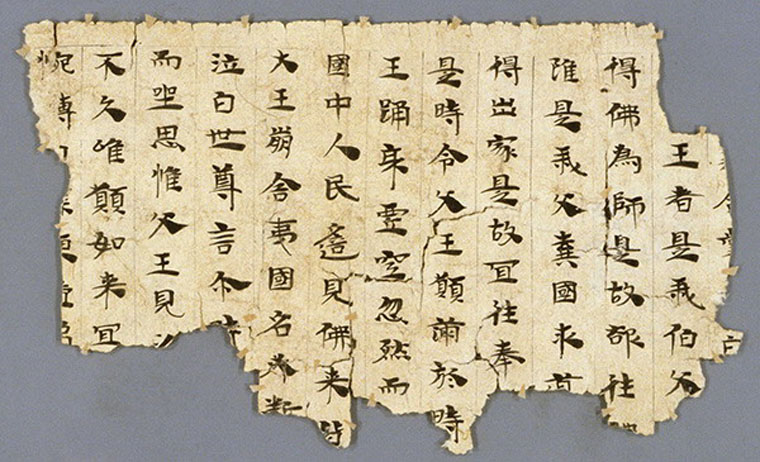 王者是我伯父
得佛為師是故往
陁是我父棄國求
得出家是故冝往奉
是時令父王願滿於時
王踊身虛空忽然而
國中人民遥見佛来
大王崩舍夷國名必断
泣白世尊言今時
而坐思惟父王見
不久唯願如来冝
惋轉願